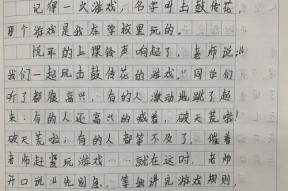 记得一次游戏，名字叫击鼓传花，
那个游戏是我在学校里玩的。
悦耳的上课铃声响起了，老师说：
我们一起玩击鼓传花的游戏。同学们
听了都很高兴，有的人激动地跳了起
来；有的人还高兴的喊着：破天荒啦！
破天荒啦；有的人都等不及了，催着
老师赶紧玩游戏……就在这时，老师
开口说：先别急，等我讲完游戏规则，